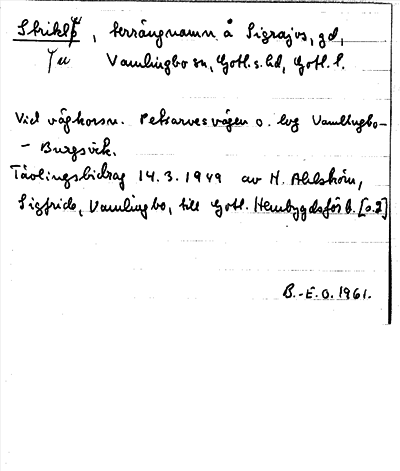 , terrängnamn å Sigrajvs, gd,
Vamlingbo sn, Gotl. s. hd, Gotl. l.
Vid vägkorsn. Petsarvevägen o. lvg Vamlingbo-
- Burgsvik.
Tävlingsbidrag 14.3.1949 av N. Ahlström,
Sigfride, Vamlingbo, till Gotl. Hembygdsförb. [s.2]
B.-E.O. 1961.